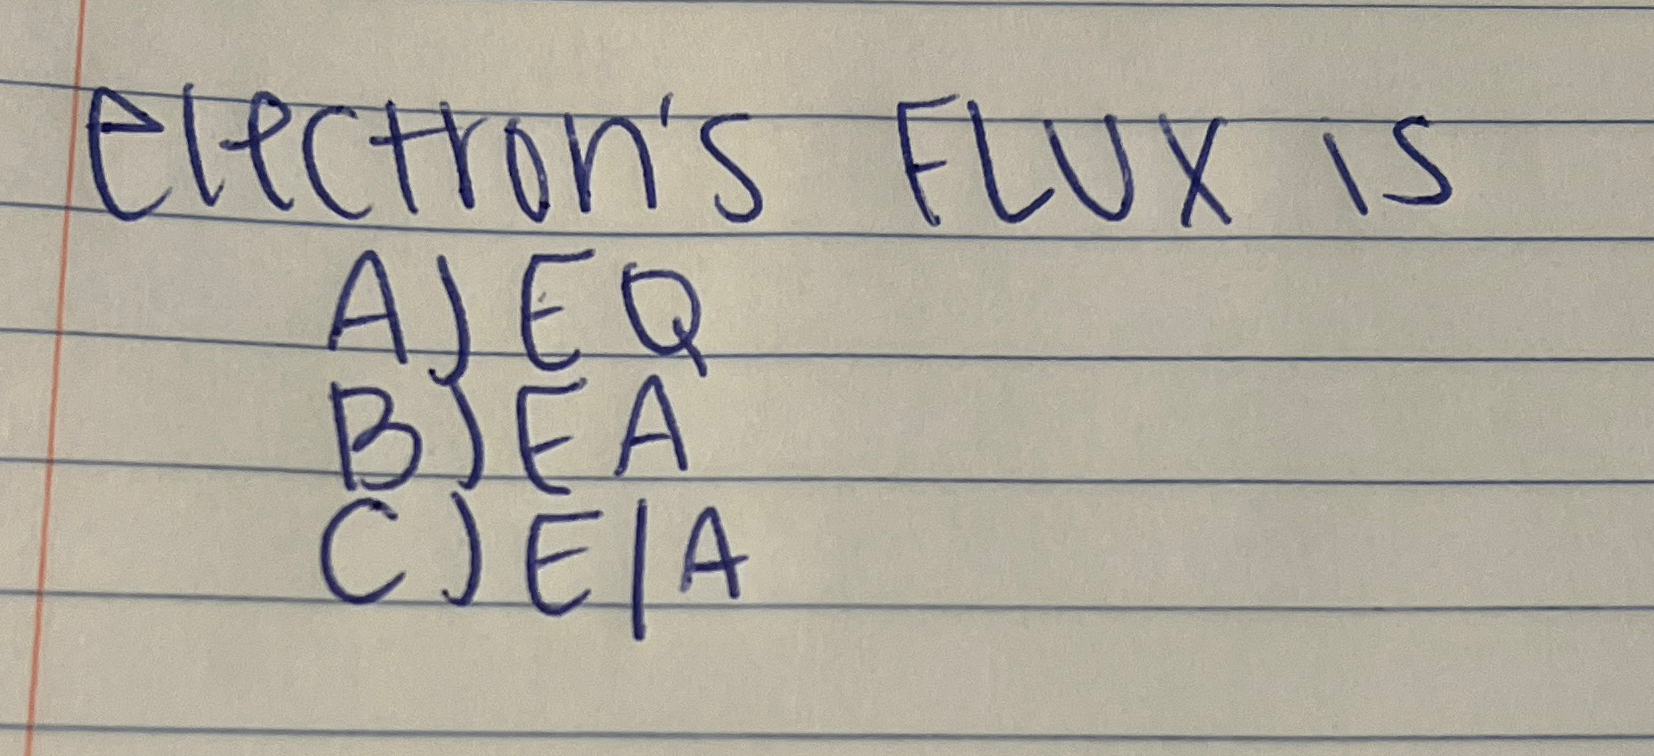 electron's FLUX is
A) E Q
B) E A
C) E/A